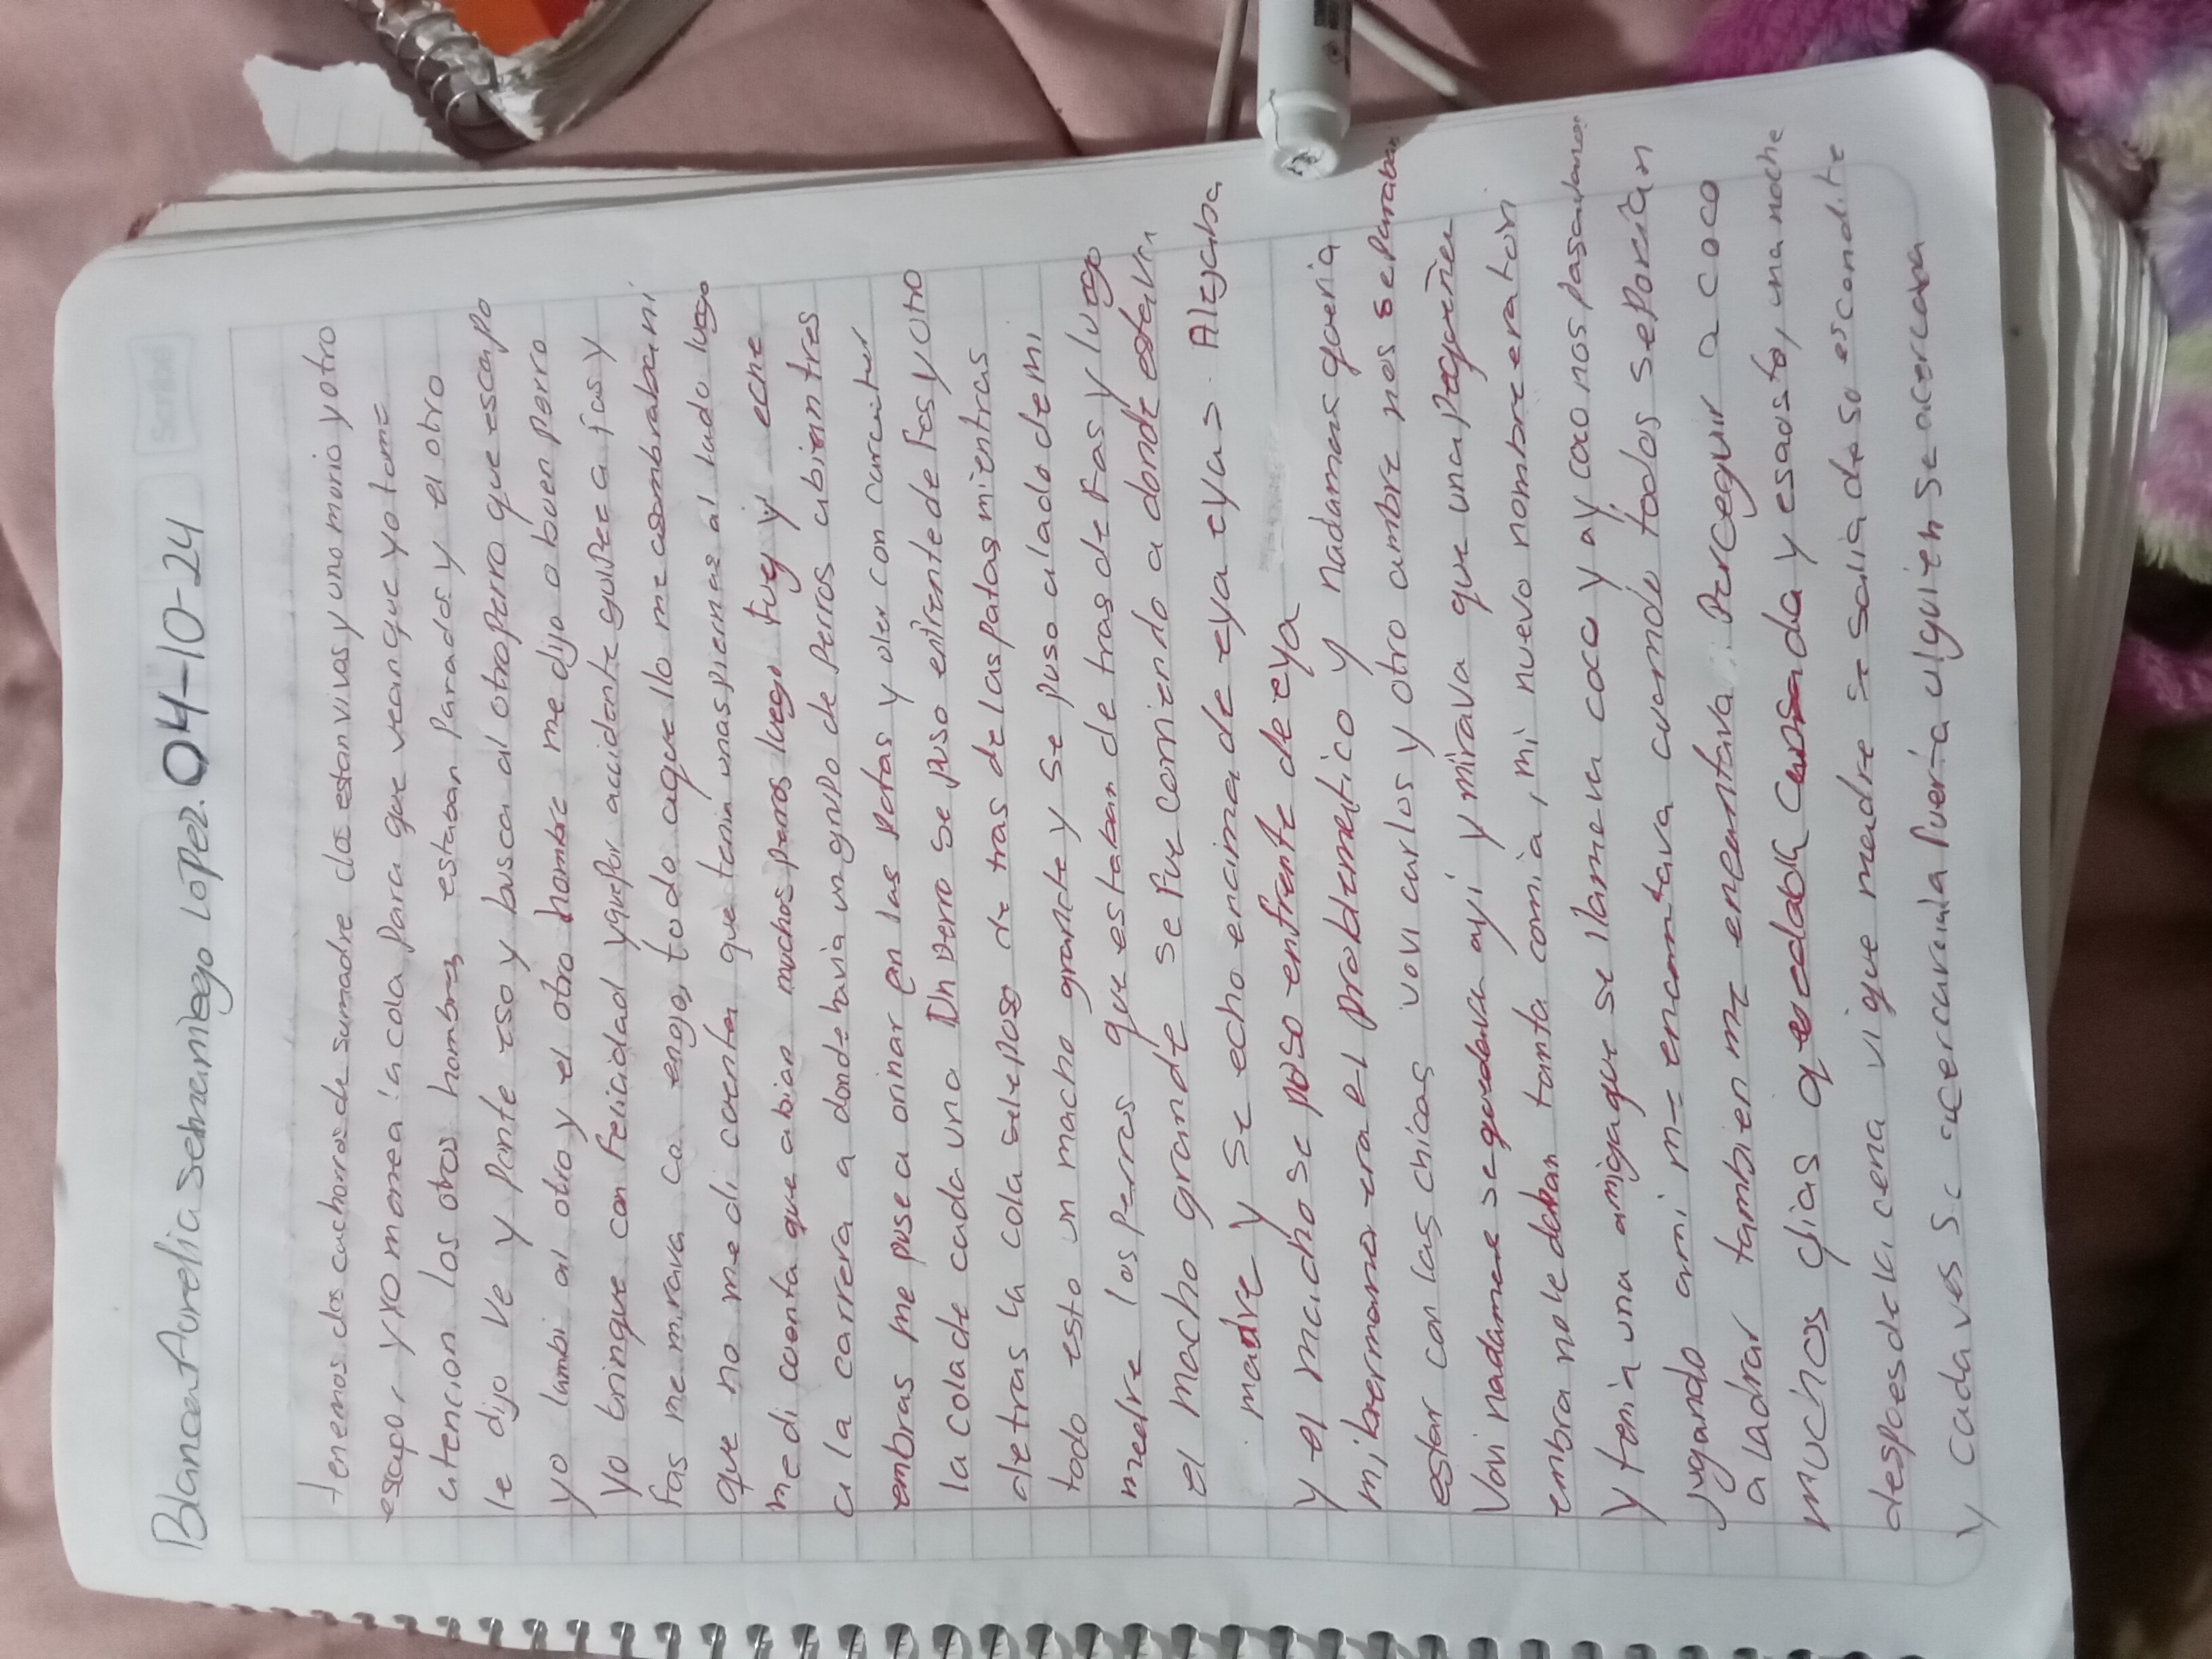 Scribe
Blanca Aurelia Semaniego Lopez. 04-10-24
tenemos dos cachorros de sumadre dos estan vivos y uno murio y otro
escapo, y yo monea la cola para que vean que yo tome
atencion los otros hombres estaban Parados y el otro
le dijo ve y Ponte eso y busca al otro perro que escapo
yo lambi al otro y el otro hombre me dijo a buen perro
yo bringue con Felicidad y que por accidente gulpee a fas y
fas me mirava co enojo, todo aquello me asombraba ni
que no me di cuenta que tenia unas piernas al lado luego
me di cuenta que abian muchos perros luego fuy y eche
a la carrera a donde havia un grupo de Perros abian tres
embras me puse a orinar en las Patas y oler con
la cola de cada una Un Perro se puso enfrente de Fas y otro
detras la cola se puso de tras de las patas mientras
todo esto un macho grande y se puso a lado de mi
madre los perros que estaban de tras de Fas y luego
el macho grande se fue corriendo a donde estava
madre y se echo encima de eya eyas. Alegaba
y el macho se poso enfrente de eya
mi hermano era el problemetico y nadamas queria
estar con las chicas vovi carlos y otro ambre nos separaban
Vovi nadamas se quedava ayi y mirava que una pequeña
embra no le daban tanta comia, mi nuevo nombre era ton
y tenia una amiga que se llamava coco y ay cao nos pasavamos
jugando ami me encantava cuando todos se ponian
a ladrar tambien me encantava Perceguir a coco
muchos dias q cansada y esausta, una noche
despues de la cena vi que madre se salia de su escondite
y cada ves se acercaria la Puerta alguien se acercava